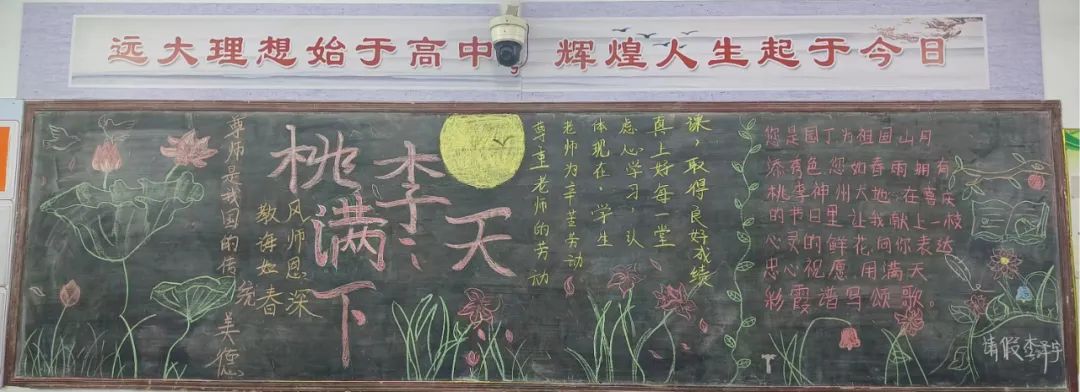 远大理想始于高中 辉煌人生起于今日
尊师是我国的传统美德
教诲如春
风师恩深
桃李满天下
尊重老师的劳动
老师为辛苦劳动
体现在,学生
虑心学习,认
真上好每一堂
课,取得良好成绩
您是园丁为祖国山月
添秀色.您如春雨拥有
桃李神州大地.在喜庆
的书日里让我献上一枝
心灵的鲜花向你表达
忠心祝愿.用满天
彩霞谱写颂歌。
请假